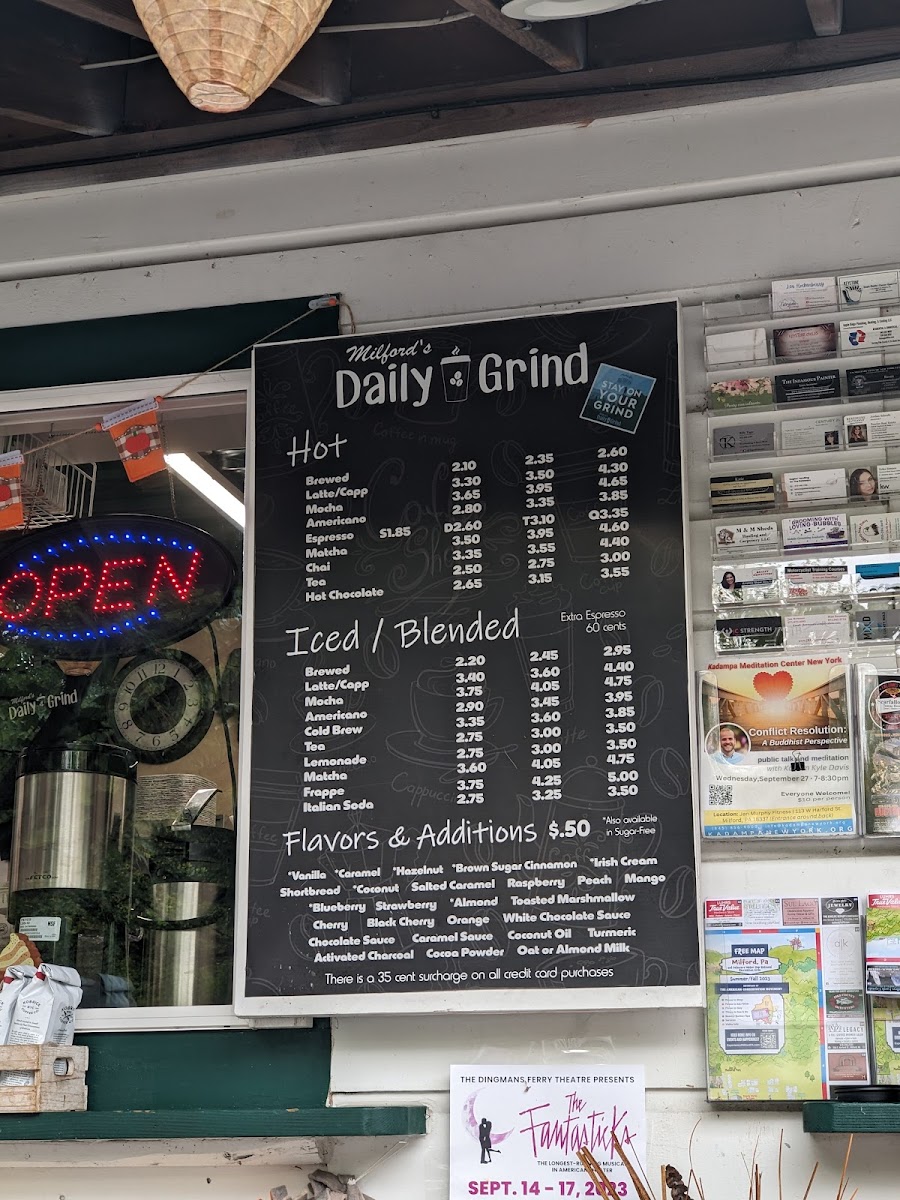 Milford's
Daily Grind
STAY ON
YOUR
GRIND
Hot
Brewed 2.10 2.35 2.60
Latte/Capp 3.30 3.50 4.30
Mocha 3.65 3.95 4.65
Americano 2.80 3.35 3.85
Espresso S1.85 D2.60 T3.10 Q3.35
Matcha 3.50 3.95 4.60
Chai 3.35 3.55 4.40
Tea 2.50 2.75 3.00
Hot Chocolate 2.65 3.15 3.55
Iced / Blended
Extra Espresso
60 cents
Brewed 2.20 2.45 2.95
Latte/Capp 3.40 3.60 4.40
Mocha 3.75 4.05 4.75
Americano 2.90 3.45 3.95
Cold Brew 3.35 3.60 3.85
Tea 2.75 3.00 3.50
Lemonade 2.75 3.00 3.50
Matcha 3.60 4.05 4.75
Frappe 3.75 4.25 5.00
Italian Soda 2.75 3.25 3.50
Flavors & Additions $.50
*Also available
in Sugar-Free
*Vanilla *Caramel *Hazelnut *Brown Sugar Cinnamon *Irish Cream
Shortbread *Coconut Salted Caramel Raspberry Peach Mango
*Blueberry Strawberry *Almond Toasted Marshmallow
Cherry Black Cherry Orange White Chocolate Sauce
Chocolate Sauce Caramel Sauce Coconut Oil Turmeric
Activated Charcoal Cocoa Powder Oat or Almond Milk
There is a 35 cent surcharge on all credit card purchases
OPEN
Milford's
Daily Grind
FETCO
NSF
THE INFAMOUS PAINTER
M & M Sheds
GROOMING WITH
LOVING BUBBLES
Motorcyclist Training Courses
STRENGTH
Kadampa Meditation Center New York
Conflict Resolution:
A Buddhist Perspective
public talk and meditation
with Kyle Davis
Wednesday, September 27 - 7-8:30pm
Everyone Welcome!
$10 per person
KADAMPANEWYORK.ORG
True Value
JEWELRY
FREE MAP
Milford, Pa
Summer/Fall 2023
LEGACY
THE DINGMANS FERRY THEATRE PRESENTS
The
Fantasticks
THE LONGEST-RUNNING MUSICAL
IN AMERICAN THEATER
SEPT. 14 - 17, 2023